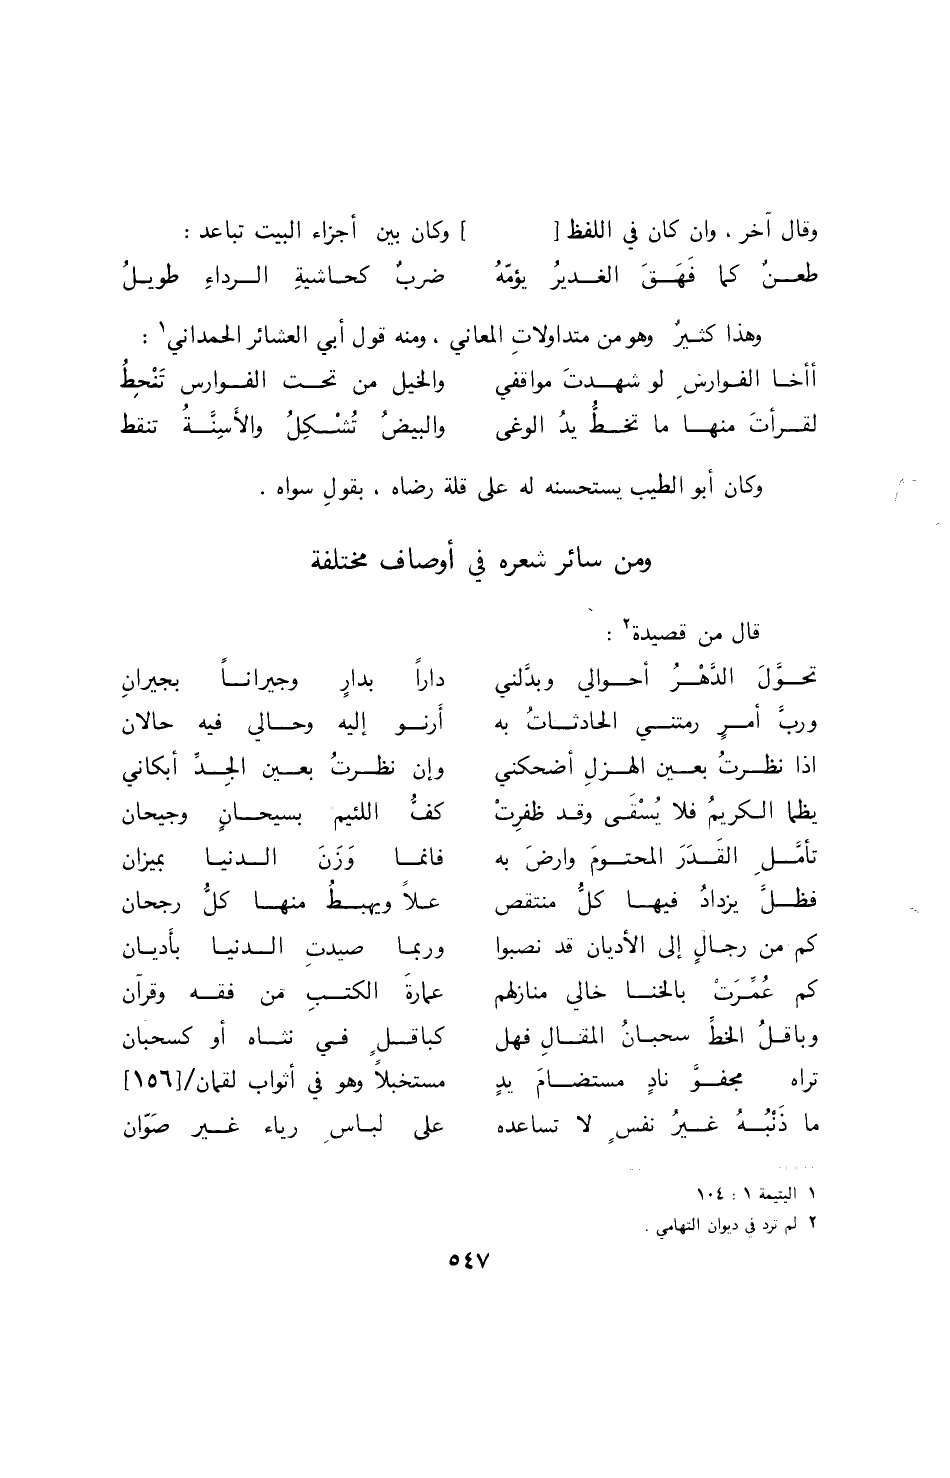 وقال آخر ، وان كان في اللفظ [ ] وكان بين أجزاء البيت تباعد :
طعنٌ كما فَهَقَ الغديرُ يؤمّهُ ضربٌ كحاشيةِ الرداءِ طويلُ
وهذا كثيرٌ وهو من متداولاتِ المعاني ، ومنه قول أبي العشائر الحمداني١ :
أأخا الفوارسِ لو شهدتَ مواقفي والخيل من تحت الفوارس تَنْحِطُ
لقرأتَ منها ما تخطُّ يدُ الوغى والبيضُ تُشْكِلُ والأَسِنَّةُ تنقط
وكان أبو الطيب يستحسنه له على قلة رضاه ، بقولِ سواه .
ومن سائر شعره في أوصاف مختلفة
قال من قصيدة٢ :
تحوَّلَ الدَّهْرُ أحوالي وبدَّلني داراً بدارٍ وجيراناً بجيرانِ
وربَّ أمرٍ رمتني الحادثاتُ به أَرنو إليه وحالي فيه حالان
اذا نظرتُ بعين الهزلِ أضحكني وإن نظرتُ بعين الجدِّ أبكاني
يظما الكريمُ فلا يُسْقَى وقد ظفرتْ كفُّ اللئيم بسيحانٍ وجيحان
تأمَّلِ القَدَرَ المحتومَ وارضَ به فانما وَزَنَ الدنيا بميزان
فظلَّ يزدادُ فيها كلُّ منتقص علاً ويهبطُ منها كلُّ رجحان
كم من رجالٍ إلى الأديان قد نصبوا وربما صيدتِ الدنيا بأديان
كم عُمِّرَتْ بالخنا خالي منازلهم عمارةَ الكتبِ من فقه وقرآن
وباقلُ الخطِّ سحبانُ المقالِ فهل كباقلٍ في نثاه أو كسحبان
تراه مجفوَّ نادٍ مستضامَ يدٍ مستخبلاً وهو في أثواب لقمان/[١٥٦]
ما ذَنْبُهُ غيرُ نفسٍ لا تساعده على لباسِ رياء غير صَوّان
١ اليتيمة ١ : ١٠٤
٢ لم ترد في ديوان التهامي .
٥٤٧